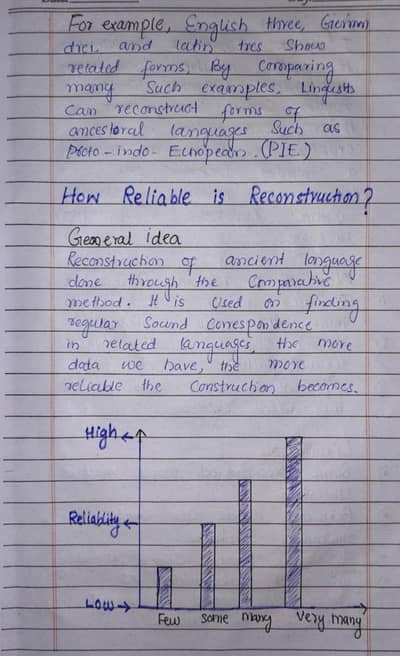 For example, English three, German
drei, and latin tres Show
related forms. By Comparing
many Such examples. Linguists
Can reconstruct forms of
ancestoral languages Such as
Proto-indo-European. (PIE)
How Reliable is Reconstruction?
General idea
Reconstruction of ancient language
done through the Comparative
method. It is Used on finding
regular Sound Correspondence
in related languages, the more
data we have, the more
reliable the Construction becomes.
High
Reliablity
Low
Few some Many Very many